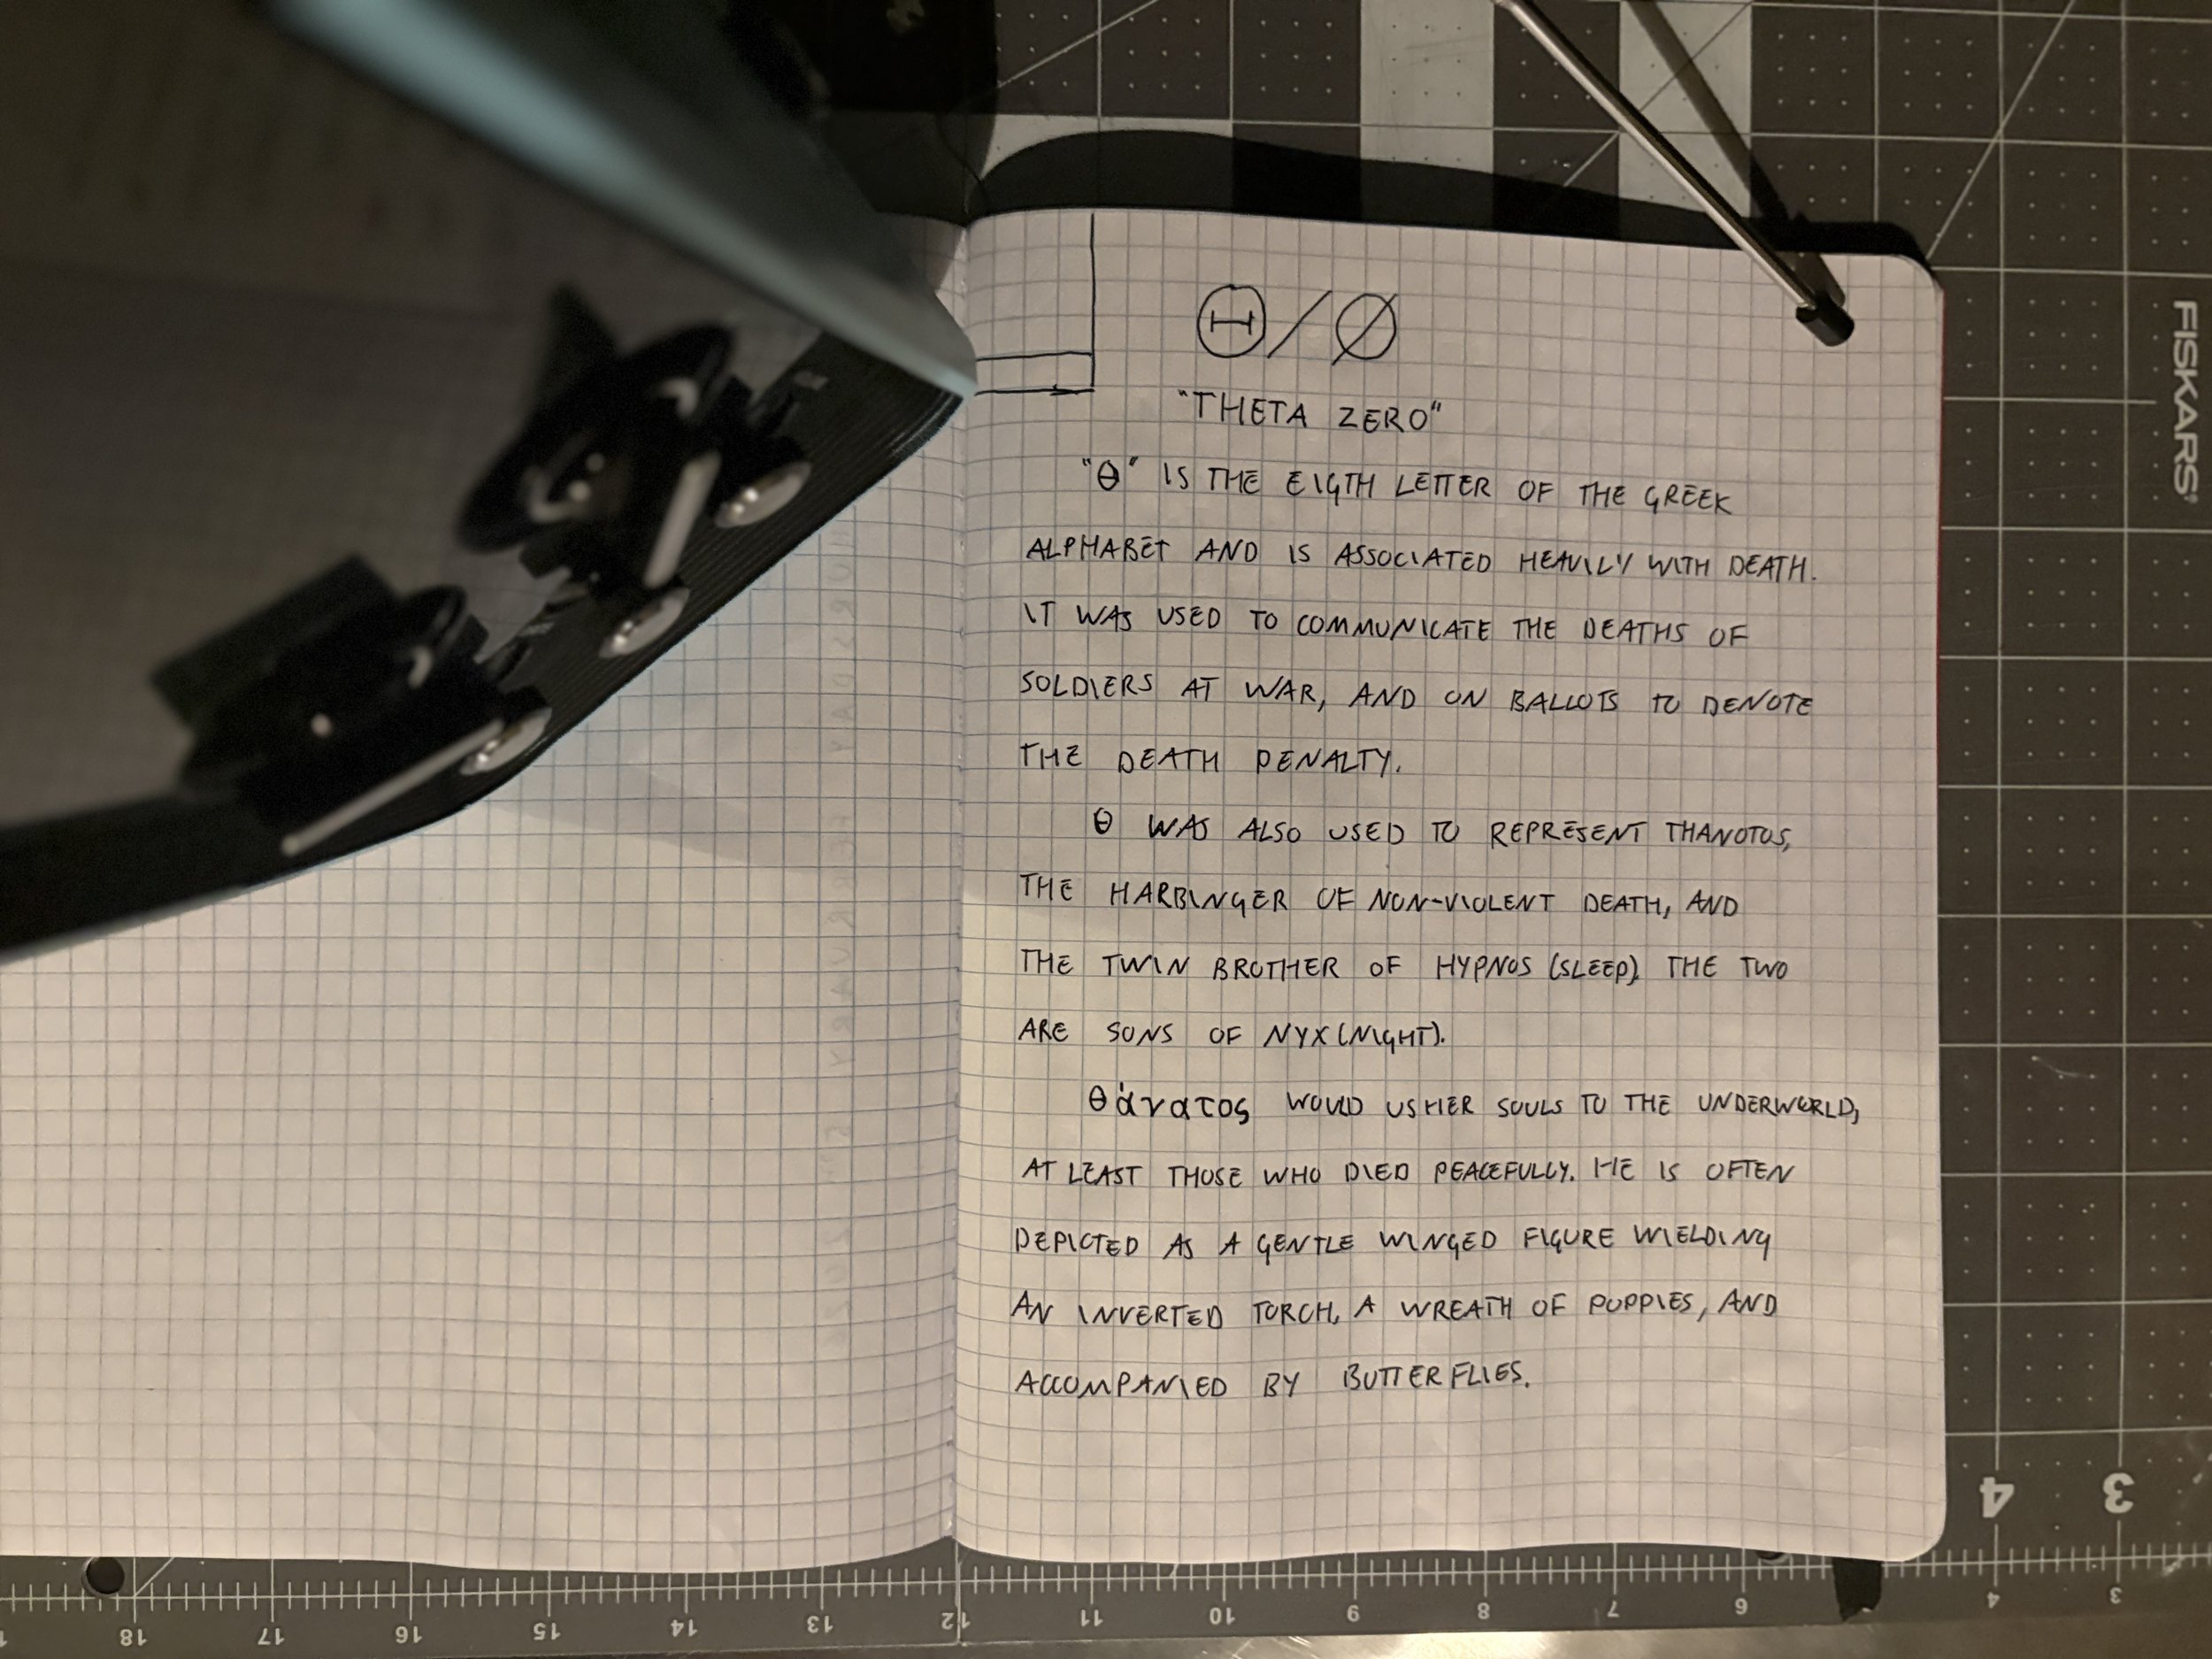 Θ/Ø
"THETA ZERO"
"θ" IS THE EIGTH LETTER OF THE GREEK
ALPHABET AND IS ASSOCIATED HEAVILY WITH DEATH.
IT WAS USED TO COMMUNICATE THE DEATHS OF
SOLDIERS AT WAR, AND ON BALLOTS TO DENOTE
THE DEATH PENALTY.
θ WAS ALSO USED TO REPRESENT THANOTOS,
THE HARBINGER OF NON-VIOLENT DEATH, AND
THE TWIN BROTHER OF HYPNOS (SLEEP). THE TWO
ARE SONS OF NYX (NIGHT).
θάνατος WOULD USHER SOULS TO THE UNDERWORLD,
AT LEAST THOSE WHO DIED PEACEFULLY. HE IS OFTEN
DEPICTED AS A GENTLE WINGED FIGURE WIELDING
AN INVERTED TORCH, A WREATH OF POPPIES, AND
ACCOMPANIED BY BUTTERFLIES.
FISKARS®
4 3
18 17 16 15 14 13 12 12 11 10 9 8 7 6 4 3